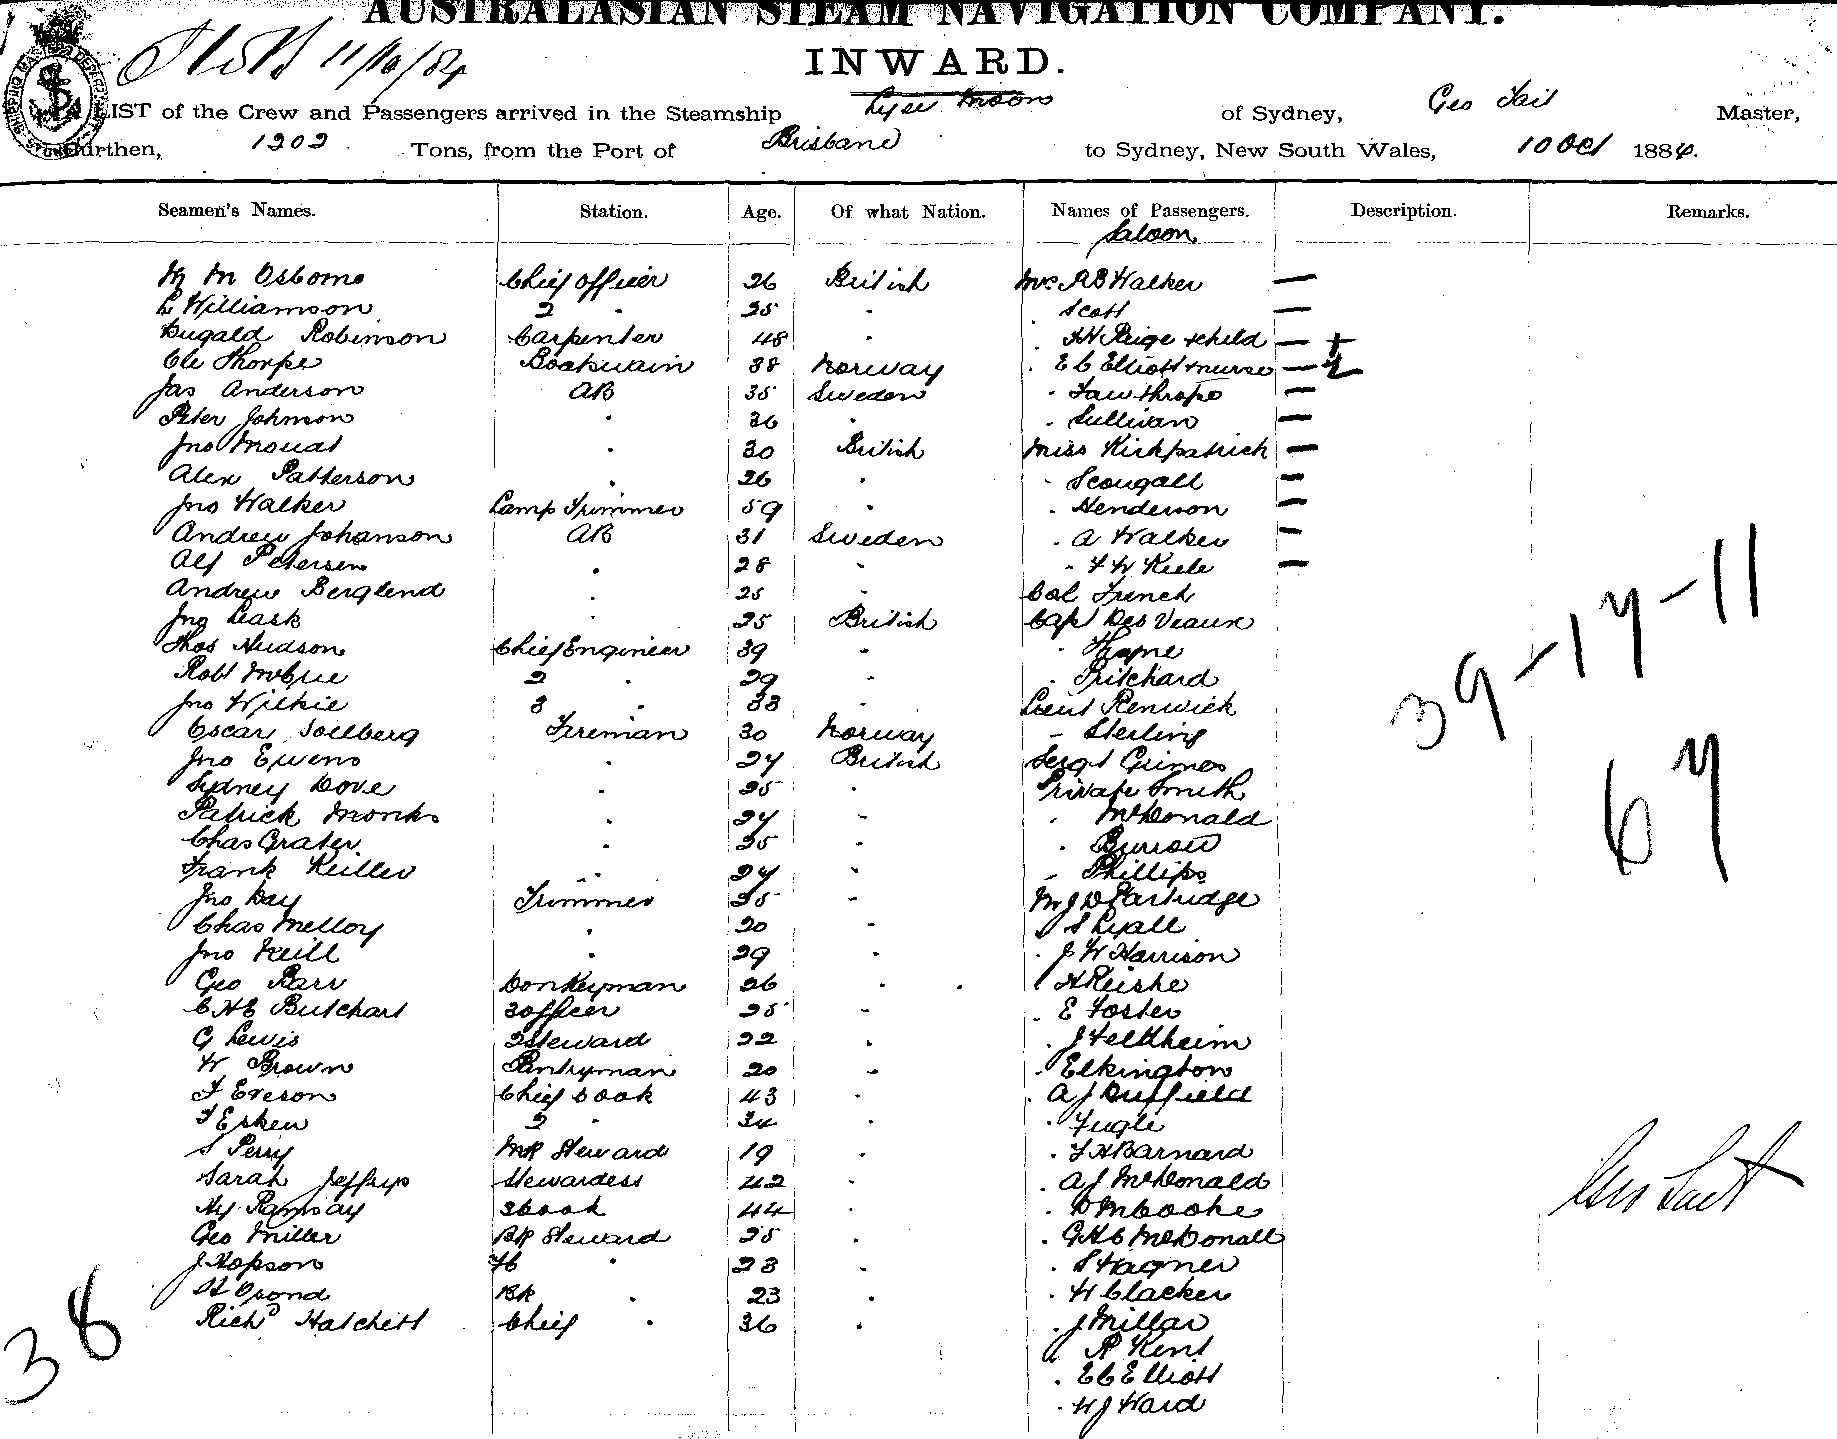 AUSTRALASIAN STEAM NAVIGATION COMPANY.
INWARD.
11/10/84
LIST of the Crew and Passengers arrived in the Steamship Ly-ee Moon of Sydney, Geo Tait Master,
Burthen, 1202 Tons, from the Port of Brisbane to Sydney, New South Wales, 10 Oct 1884.
Seamen's Names. Station. Age. Of what Nation. Names of Passengers. Description. Remarks.
Saloon
M M Osborne Chief Officer 26 British Mrs R B Walker —
L Williamson 2 " 25 " " Scott —
Dugald Robinson Carpenter 48 " " Paige & child — +
Ole Thorpe Boatswain 38 Norway " E C Elliott & nurse —
Jas Anderson AB 35 Sweden " Fawthrope —
Peter Johnson " 36 " " Sullivan —
Jno Mouat " 30 British Miss Kirkpatrick —
Alex Patterson " 26 " " Scougall —
Jno Walker Lamp Trimmer 59 " " Henderson —
Andrew Johanson AB 31 Sweden " A Walker —
Alf Petersen " 28 " " Keele —
Andrew Berglend " 25 " Col French
Jno Leask " 25 British Capt Des Veaux
Thos Hudson Chief Engineer 39 " " Thyne
Robt McGue 2 " 29 " " Pritchard
Jno Wilkie 3 " 33 " Lieut Renwick
Oscar Sollberg Fireman 30 Norway " Sterling
Jno Ewens " 24 British Sergt Grimes
Sydney Dove " 25 " Private Smith
Patrick Monks " 24 " " McDonald
Chas Grater " 25 " "
Frank Keiller " 24 " " Phillips
Jno Day Trimmer 25 " Mr J D Partridge
Chas Melloy " 20 " " S Lyall
Jno Neill " 29 " " J W Harrison
Geo Barr Donkeyman 26 " " H Reishe
C H E Butchart 3 officer 25 " " E Foster
G Lewis 2 Steward 22 " " J Feldheim
W Brown Pantryman 20 " " Elkington
F Everson Chief Cook 43 " " A J Duffield
F Esken 2 " 34 " " Fugle
S Perry MR Steward 19 " " F H Barnard
Sarah Jeffrys Stewardess 42 " " A J McDonald
Hy Ramsay 3 Cook 44 " " D McCooke
Geo Miller BR Steward 25 " " G H C McDonall
J Hopson FC " 23 " " S Wagner
H Osond BR " 23 " " W Clacker
Richd Hatchett Chief " 36 " " J Millar
" R Kent
" E C Elliott
" W J Ward
39-17-11
67
Geo Tait
38